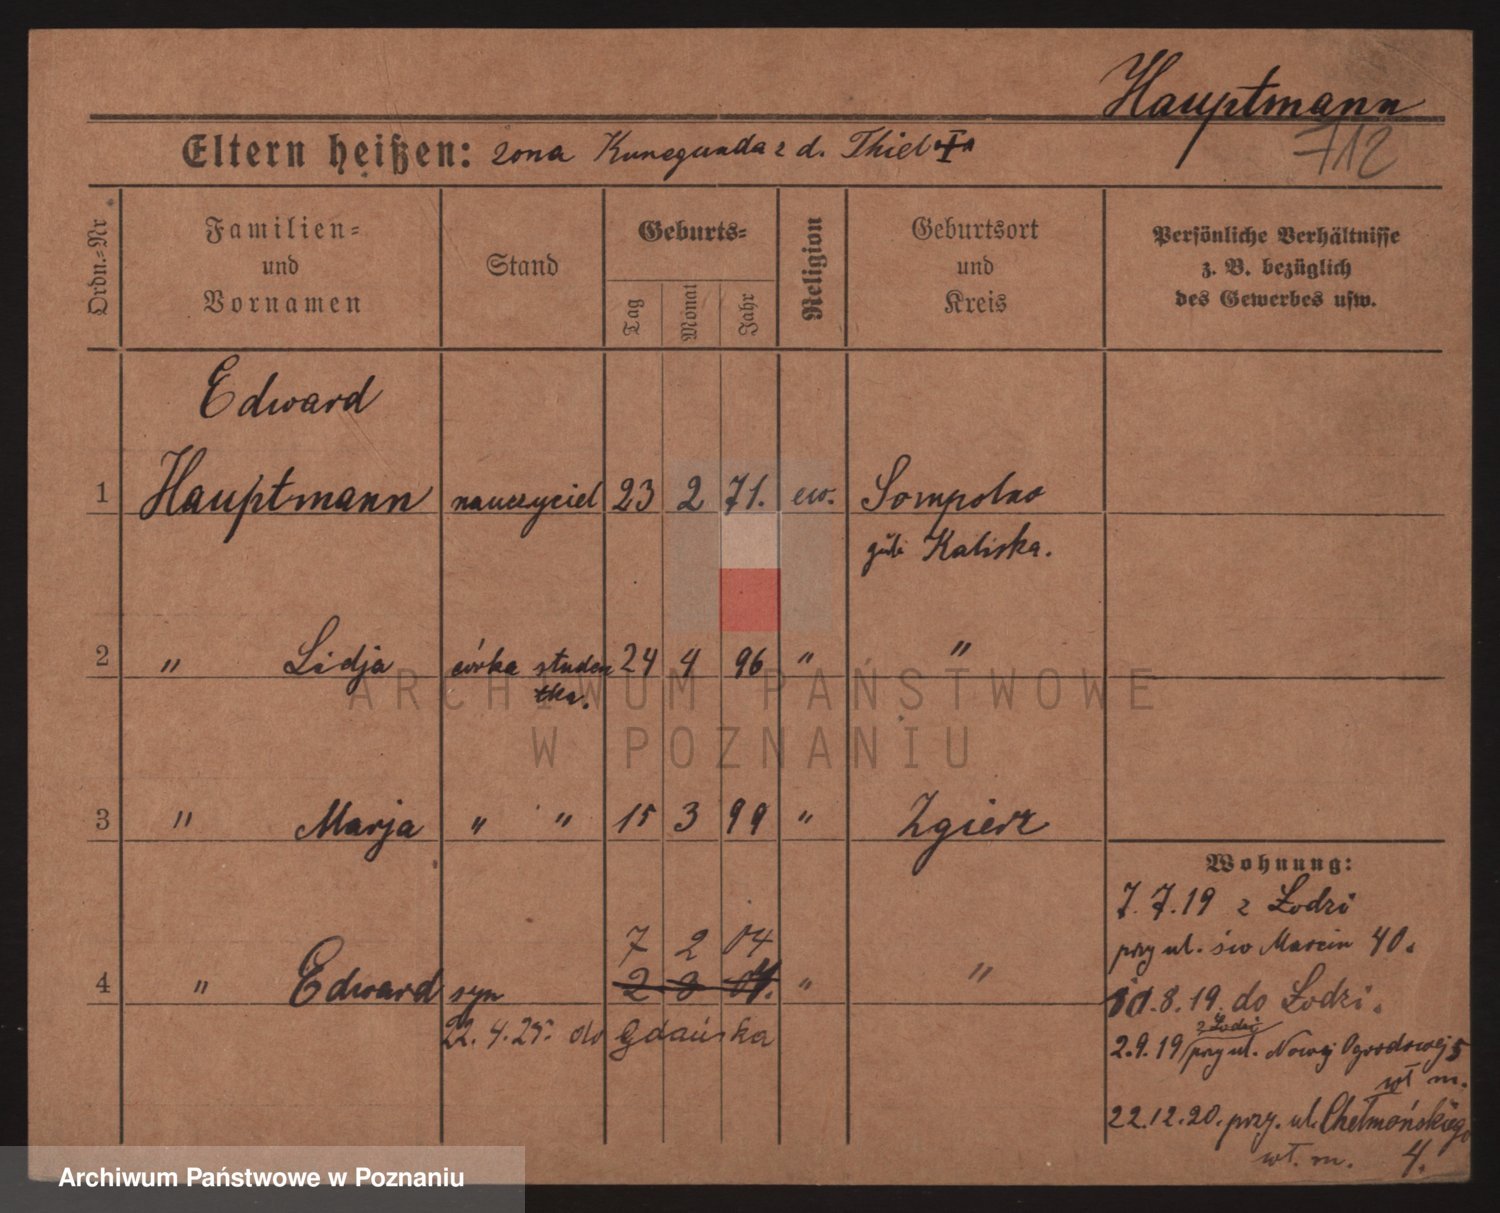 Hauptmann
712
Eltern heißen: zona Kunegunda z d. Thiel
Ordn.-Nr
Familien-
und
Vornamen
Stand
Geburts-
Tag
Monat
Jahr
Religion
Geburtsort
und
Kreis
Persönliche Verhältnisse
z. B. bezüglich
des Gewerbes usw.
Edward
1 Hauptmann nauczyciel 23 2 71. ew. Sompolno
gub Kaliska.
2 " Lidja córka studen 24 4 96 " "
tka.
ARCHIWUM PAŃSTWOWE
W POZNANIU
3 " Marja " " 15 3 99 " Zgierz
Wohnung:
7.7.19 z Łodzi
przy ul. św Marcin 40.
7 2 04
4 " Edward syn 2 3 04. " "
1.8.19. do Łodzi.
22.4.25. do Gdańska
z Łodzi
2.9.19 przy ul. Nowej Ogrodowej 5
wł m.
22.12.20. przy. ul. Chełmońskiego
wł. m. 4.
Archiwum Państwowe w Poznaniu